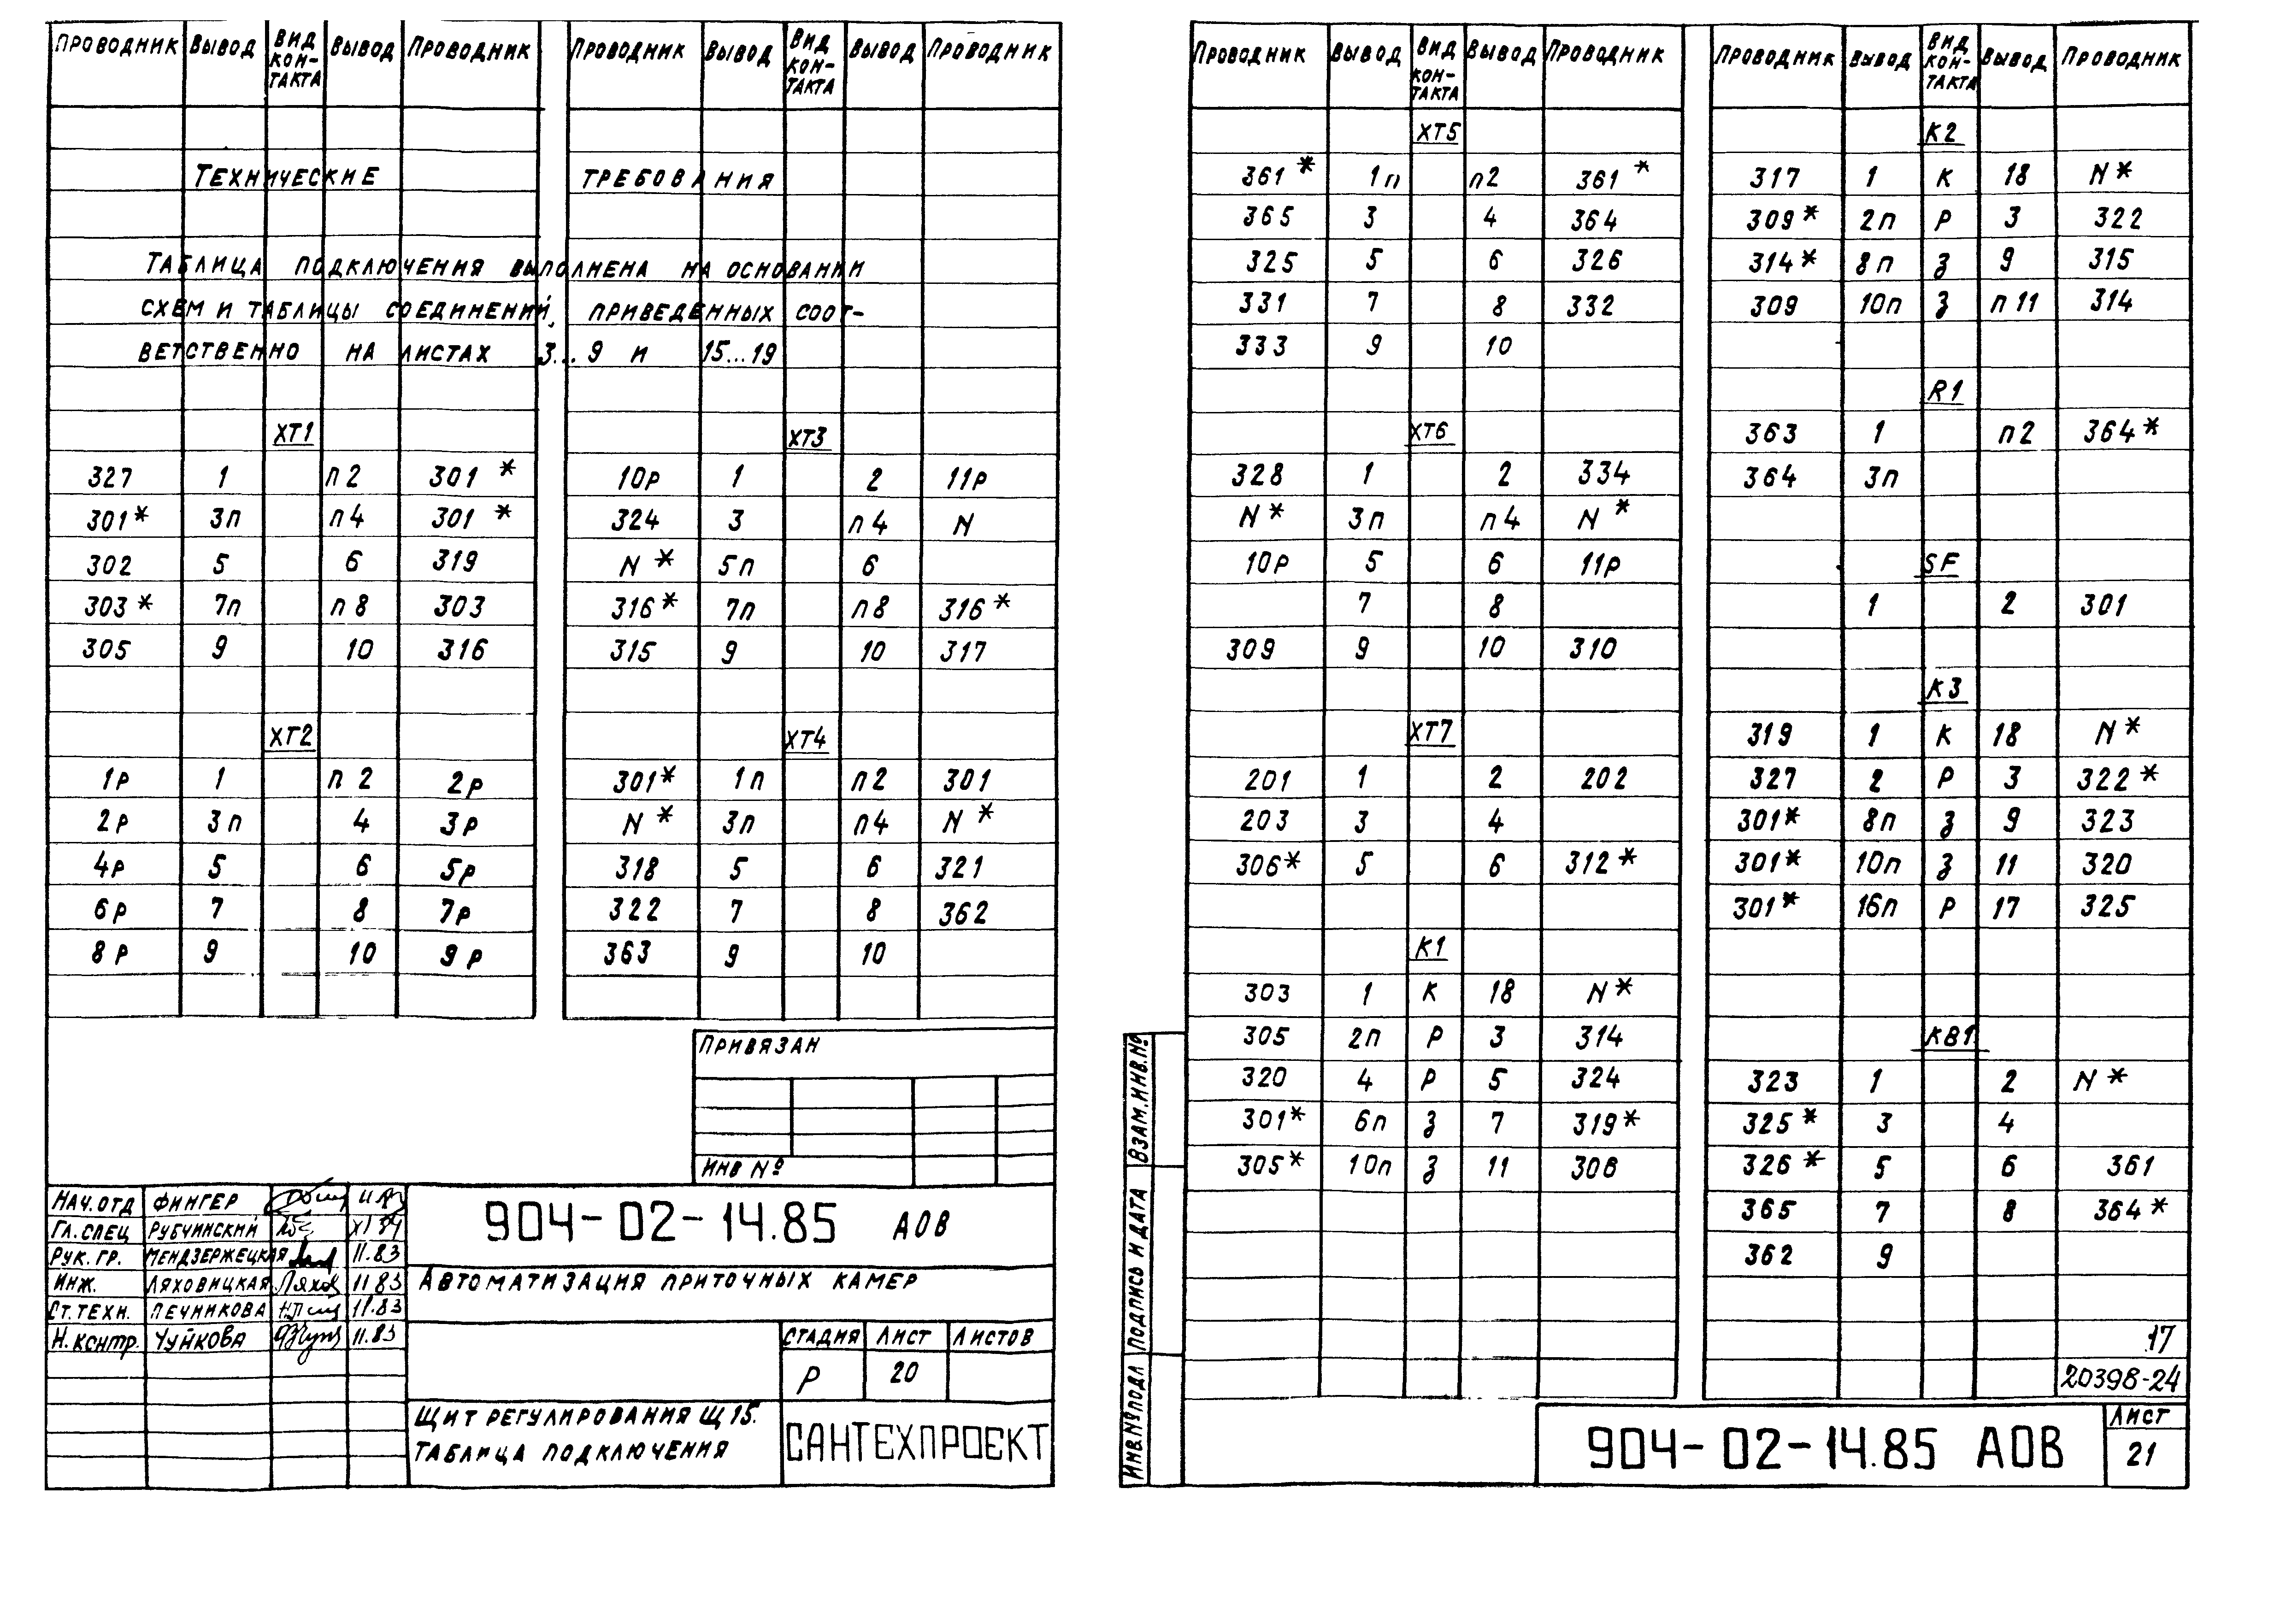 Проводник Вывод Вид контакта Вывод Проводник
Технические
Таблица подключения выполнена на основании
схем и таблицы соединений, приведенных соот-
ветственно на листах 3...9 и 15...19
ХТ1
327 1 п2 301*
301* 3п п4 301*
302 5 6 319
303* 7п п8 303
305 9 10 316
ХТ2
1Р 1 п2 2Р
2Р 3п 4 3Р
4Р 5 6 5Р
6Р 7 8 7Р
8Р 9 10 9Р
Проводник Вывод Вид контакта Вывод Проводник
требования
ХТ3
10Р 1 2 11Р
324 3 п4 N
N* 5п 6
316* 7п п8 316*
315 9 10 317
ХТ4
301* 1п п2 301
N* 3п п4 N*
318 5 6 321
322 7 8 362
363 9 10
Привязан
Инв №
Нач.отд Фингер
Гл.спец Рубчинский
Рук. гр. Мендзержецкая 11.83
Инж. Ляховицкая Ляхов 11 83
Ст.техн. Печникова 11.83
Н.контр. Чуйкова 11.83
904-02-14.85 АОВ
Автоматизация приточных камер
Стадия Лист Листов
Р 20
Щит регулирования Щ15.
Таблица подключения
САНТЕХПРОЕКТ
Проводник Вывод Вид контакта Вывод Проводник
ХТ5
361* 1п п2 361*
365 3 4 364
325 5 6 326
331 7 8 332
333 9 10
ХТ6
328 1 2 334
N* 3п п4 N*
10Р 5 6 11Р
7 8
309 9 10 310
ХТ7
201 1 2 202
203 3 4
306* 5 6 312*
К1
303 1 К 18 N*
305 2п Р 3 314
320 4 Р 5 324
301* 6п З 7 319*
305* 10п З 11 306
Проводник Вывод Вид контакта Вывод Проводник
К2
317 1 К 18 N*
309* 2п Р 3 322
314* 8п З 9 315
309 10п З п11 314
R1
363 1 п2 364*
364 3п
SF
1 2 301
К3
319 1 К 18 N*
327 2 Р 3 322*
301* 8п З 9 323
301* 10п З 11 320
301* 16п Р 17 325
КВ1
323 1 2 N*
325* 3 4
326* 5 6 361
365 7 8 364*
362 9
17
20398-24
904-02-14.85 АОВ
Лист
21
Инв.№подл Подпись и дата Взам.инв.№